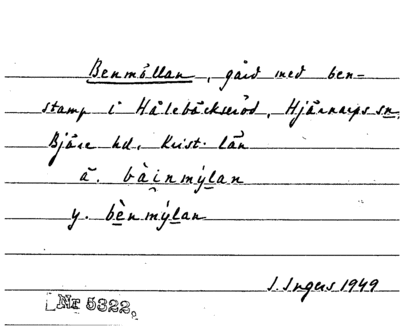 Benmöllan, gård med ben-
stamp i Hålebäckseröd, Hjärnarps sn,
Bjäre hd, Krist. län
ä. bàinmýlan
y. bènmýlan
I. Ingers 1949
Nr 5322.